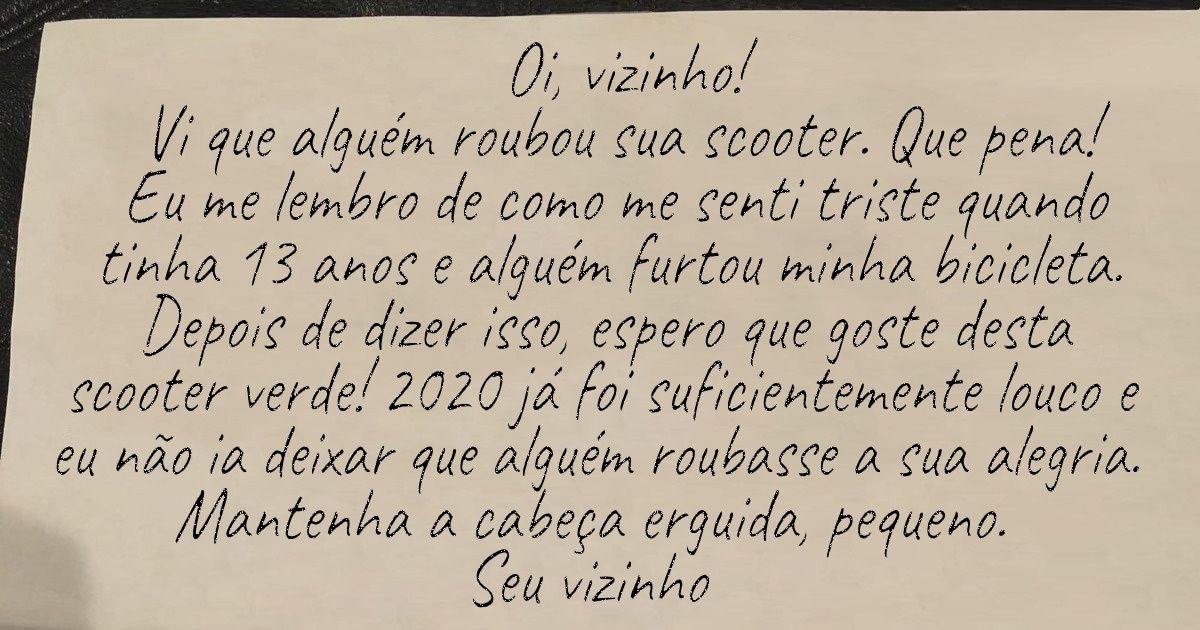 Oi, vizinho!
Vi que alguém roubou sua scooter. Que pena!
Eu me lembro de como me senti triste quando
tinha 13 anos e alguém furtou minha bicicleta.
Depois de dizer isso, espero que goste desta
scooter verde! 2020 já foi suficientemente louco e
eu não ia deixar que alguém roubasse a sua alegria.
Mantenha a cabeça erguida, pequeno.
Seu vizinho